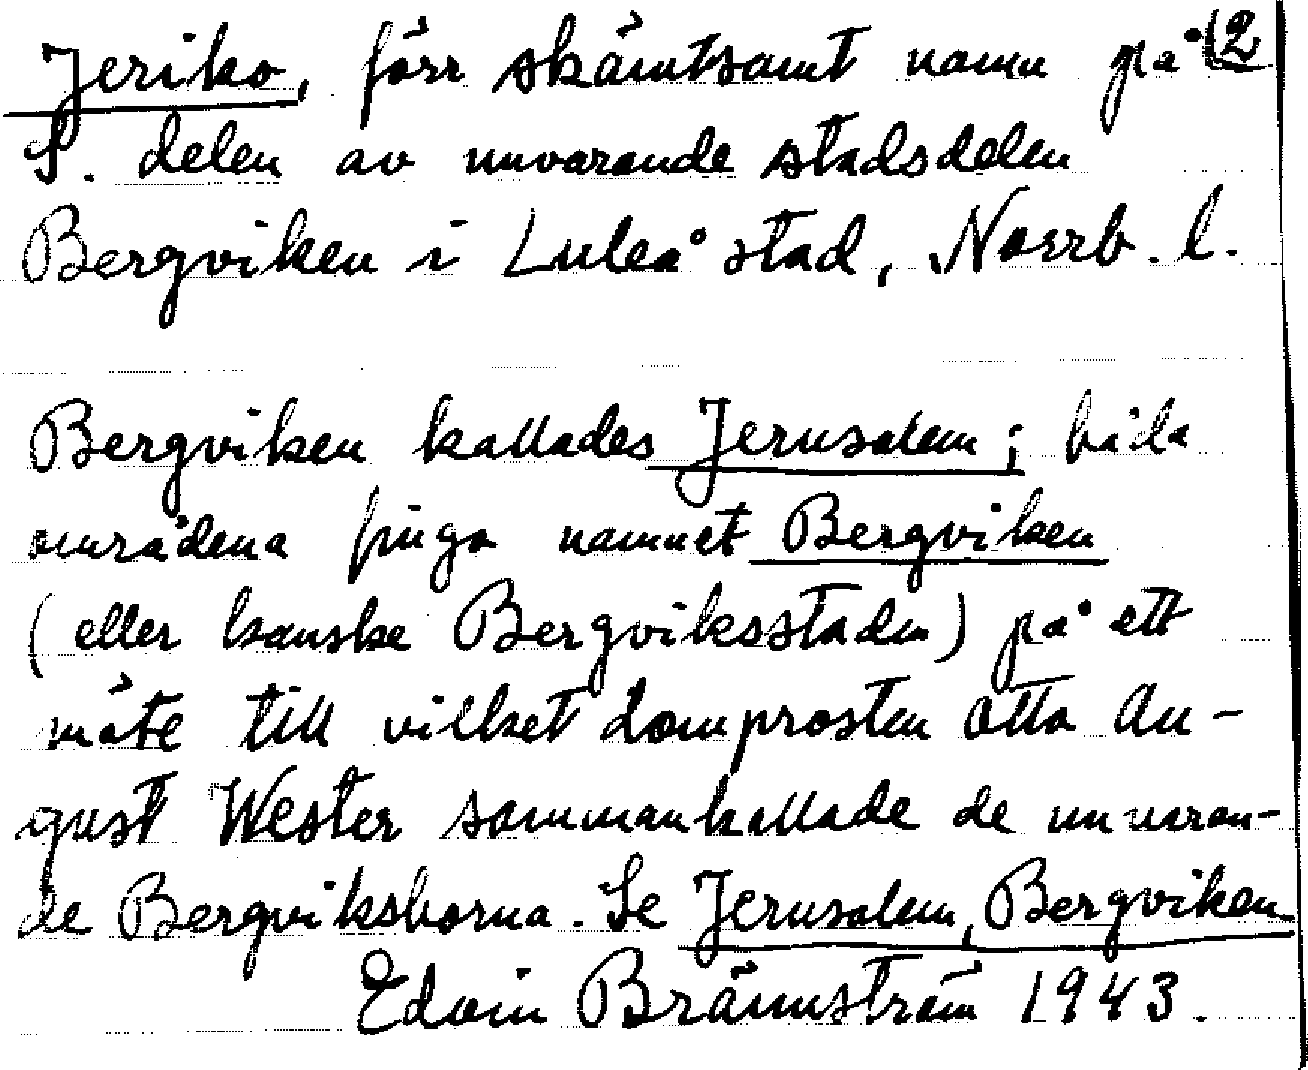 Jeriko, förr skämtsamt namn på (2
S. delen av nuvarande stadsdelen
Bergviken i Luleå stad, Norrb. l.
Bergviken kallades Jerusalem; båda
områdena fingo namnet Bergviken
(eller kanske Bergviksstaden) på ett
möte till vilket domprosten Otto Au-
gust Wester sammankallade de nuvaran-
de Bergviksborna. Se Jerusalem, Bergviken
Edvin Brännström 1943.